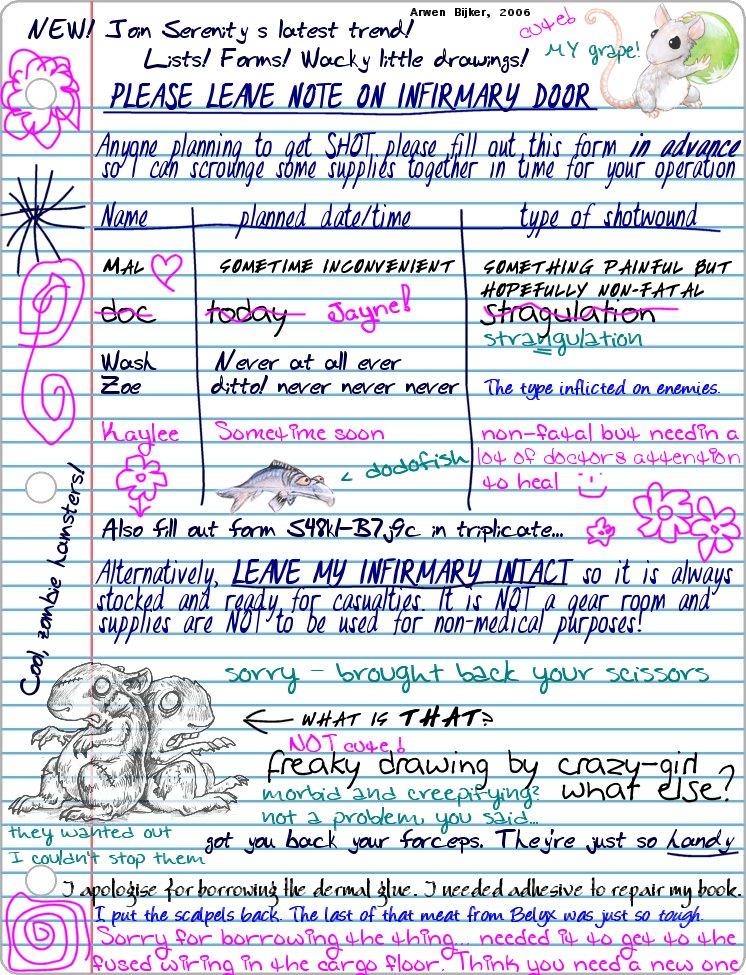 Arwen Bijker, 2006
NEW! Join Serenity s latest trend!
cute!
Lists! Forms! Wacky little drawings!
MY grape!
PLEASE LEAVE NOTE ON INFIRMARY DOOR
Anyone planning to get SHOT please fill out this form in advance
so I can scrounge some supplies together in time for your operation
Name planned date/time type of shotwound
MAL SOMETIME INCONVENIENT SOMETHING PAINFUL BUT
HOPEFULLY NON-FATAL
doc today Jayne! stragulation
strangulation
Wash Never at all ever
Zoe ditto! never never never The type inflicted on enemies.
Kaylee Sometime soon non-fatal but needin a
lot of doctors attention
to heal
< dodofish
Also fill out form S48kl-B7j9c in triplicate...
Alternatively, LEAVE MY INFIRMARY INTACT so it is always
stocked and ready for casualties. It is NOT a gear room and
supplies are NOT to be used for non-medical purposes!
Cool, zombie hamsters!
sorry - brought back your scissors
WHAT IS THAT?
NOT cute!
freaky drawing by crazy-girl
what else?
morbid and creepifying?
not a problem, you said...
they wanted out
I couldn't stop them
got you back your forceps. They're just so handy
I apologise for borrowing the dermal glue. I needed adhesive to repair my book.
I put the scalpels back. The last of that meat from Belyx was just so tough.
Sorry for borrowing the thing... needed it to get to the
fused wiring in the cargo floor. Think you need a new one